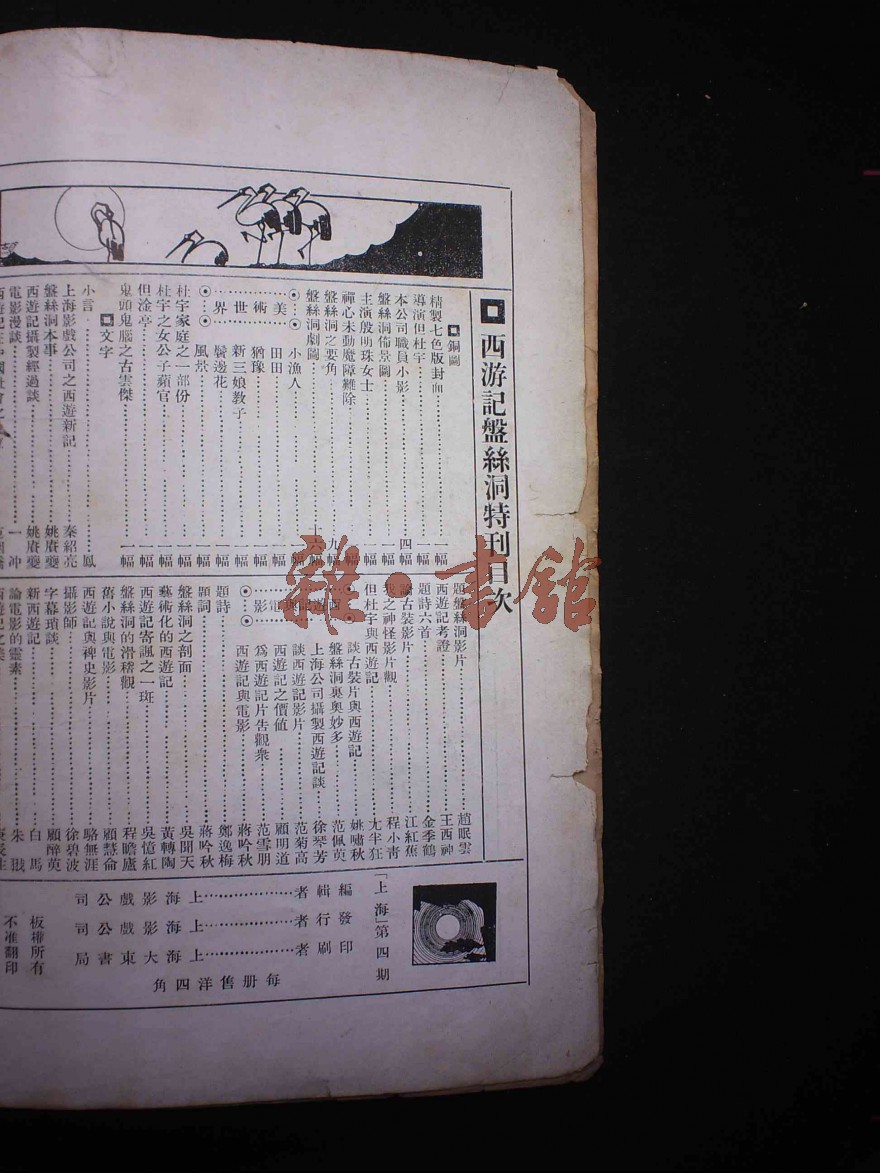 西游記盤絲洞特刊目次
銅圖
精製七色版封面 一幅
導演但杜宇 一幅
本公司職員小影 四幅
盤絲洞佈景圖 一幅
主演殷明珠女士 一幅
禪心未動魔障難除 幅
盤絲洞之要角 九幅
盤絲洞劇圖 十六幅
美術世界
小漁人 一幅
田田 一幅
猶豫 一幅
新三娘教子 一幅
鬢邊花 一幅
風景 一幅
杜宇家庭之一部份 一幅
杜宇之女公子蘋官 一幅
但淦亭 一幅
鬼頭鬼腦之古雲傑 一幅
文字
小言 鳳
上海影戲公司之西遊新記 秦紹亮
盤絲洞本事 姚賡夔
西遊記攝製經過談 姚賡夔
電影漫談 一冲
題盤絲洞影片 趙眠雲
西遊記考證 王西神
題詩六首 金季鶴
論古裝影片 江紅蕉
我之神怪影片觀 程小青
但杜宇與西遊記 尤半狂
西遊記與電影
談古裝片與西遊記 姚嘯秋
盤絲洞裏奧妙多 范佩萸
上海公司攝製西遊記談 徐琴芳
談西遊記影片 范菊高
西遊記之價值 顧明道
為西遊記片告觀衆 范雪朋
西遊記與電影 蔣吟秋
題詩 鄭逸梅
題詞 蔣吟秋
盤絲洞之剖面 吳聞天
藝術化的西遊記 黃轉陶
西遊記寄諷之一班 吳憶紅
盤絲洞的滑稽觀 程瞻廬
舊小說與電影 顧慧侖
西遊記與稗史影片 駱無涯
攝影師 徐碧波
字幕瑣談 顧醉萸
新西遊記 白馬
論電影的靈素 朱戩
「上海」第四期
編輯者 上海影戲公司
發行者 上海影戲公司
印刷者 上海大東書局
每册售洋四角
板權所有
不准翻印
雜·書館